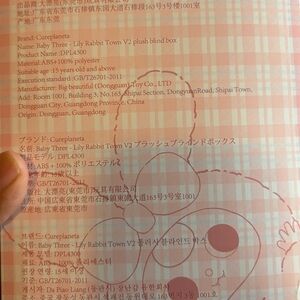 地址:广东省东莞市石排镇东园大道石排段163号3号楼1001室
地:广东东莞
Brand: Cureplaneta
Name: Baby Three - Lily Rabbit Town V2 plush blind box
Product Model: DPL4300
Material:ABS+100% polyester
Suitable age :15 years old and above
Execution standard :GB/T26701-2011
Manufacturer: Big beautiful (Dongguan) Toy Co., LTD
Add: Room 1001, Building 3, No.163, Shipai Section, DongyuanRoad, Shipai Town,
Dongguan City, Guangdong Province, China
Origin: Dongguan, Guangdong
ブランド: Cureplaneta
名前: Baby Three - Lily Rabbit Town V2 プラッシュブラインドボックス
モデル: DPL4300
ABS + 100% ポリエステル
15歳以上
GB/T26701-2011
브랜드: Cureplaneta
이름: Baby Three - Lily Rabbit Town V2 플러시 블라인드 박스
제품 모델: DPL4300
재료: ABS + 100% 폴리에스테르
권장 연령: 15세 이상
기준: GB/T26701-2011